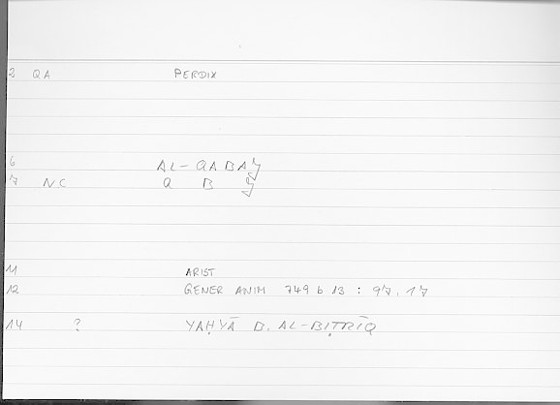 2 QA PERDIX
6 AL-QABAǦ
7 NC Q B Ǧ
11 ARIST
12 GENER ANIM 749 b 13 : 97.17
14 ? YAḤYĀ B. AL-BIṬRĪQ